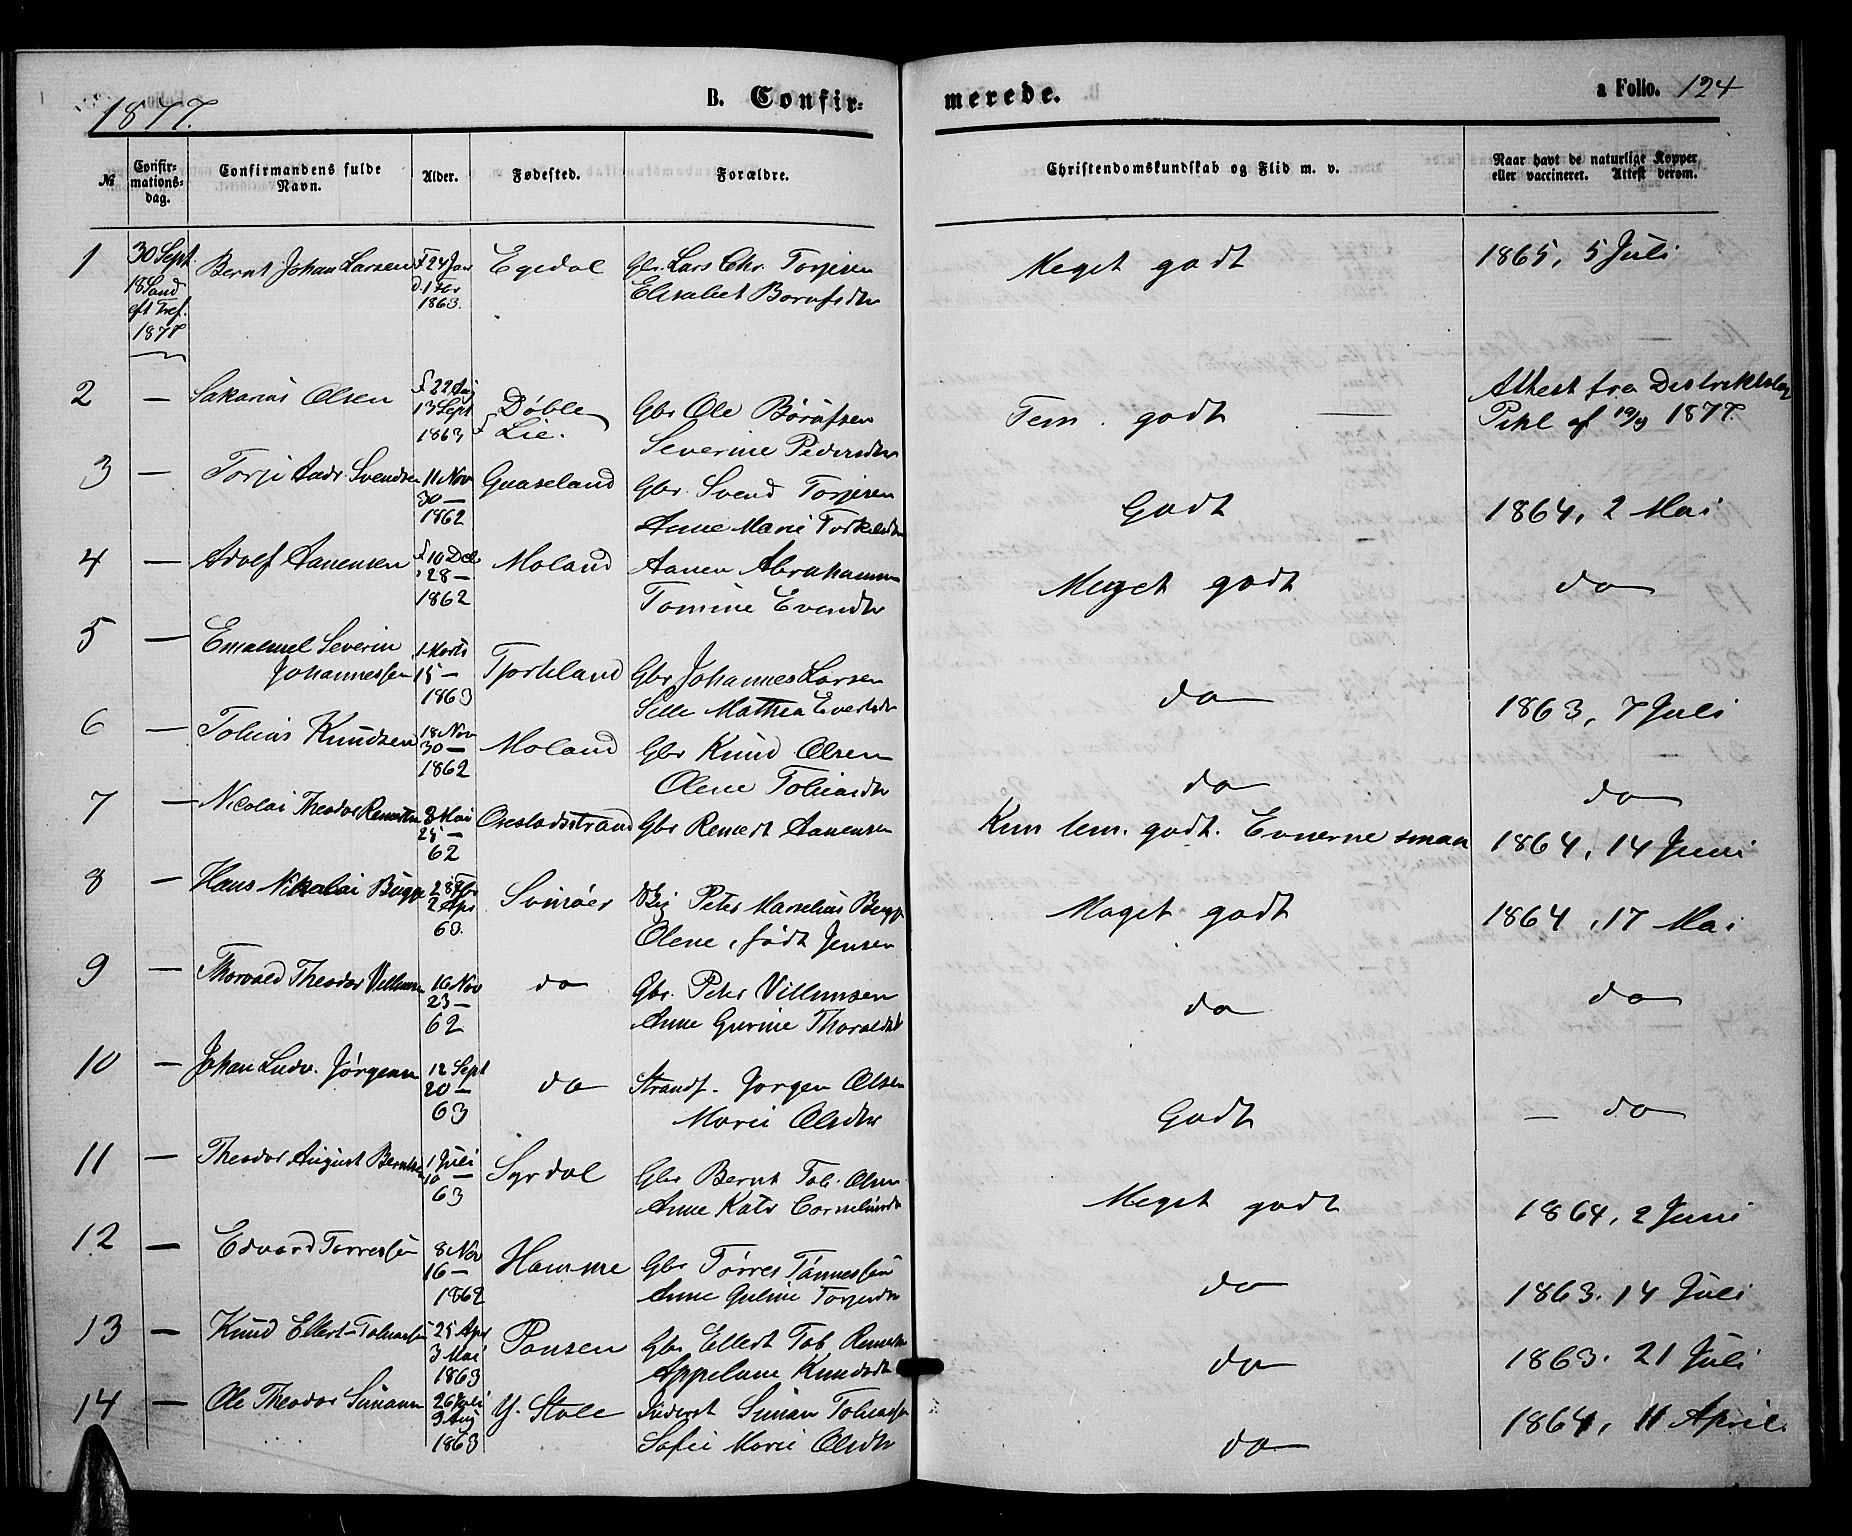 1877.
B. Confirmerede.
a Folio. 124
№
Confirmations-dag.
Confirmandens fulde Navn.
Alder.
Fødested.
Forældre.
Christendomskundskab og Flid m. v.
Naar havt de naturlige Kopper eller vaccineret. Attest derom.
1 30 Sept. 18 Sønd eft Tref. 1877 Bernt Johan Larsen f 24 Jan d. 1 Fbr 1863. Egedal Gbr. Lars Chr. Torjesen Elisabet Børufsdtr Meget godt 1865, 5 Juli
2 — Sakarias Olsen f 22 Aug 13 Sept 1863 Døble Lie. Gbr Ole Børufsen Severine Pedersdtr Tem. godt — Attest fra Distriktslæg Pihl af 19/9 1877.
3 — Torje Andr. Svendsen 11 Nov 30 — 1862 Gaaseland Gbr. Svend Torjesen Anne Marie Torkelsdtr Godt 1864, 2 Mai
4 — Adolf Aanensen f 10 Dec 28 — 1862 Moland Aanen Abrahamsen Tomine Evensdtr Meget godt do
5 — Emanuel Severin Johannessen 1 Marts 15 — 1863 Tjorkland Gbr Johannes Larsen Sille Mathea Evertsdtr do 1863, 7 Juli
6 — Tobias Knudsen 18 Nov 30 — 1862 Moland Gbr Knud Olsen Olene Tobiasdtr do do
7 — Nicolai Theodor Renertsen 8 Mai 25 — 62 Oreslodsstrand Gbr Renert Aanensen Kun tem. godt. Evnerne smaa 1864, 14 Juni
8 — Hans Nikolai Bugge 28 Fbr 2 Apr 63. Svinøer Peter Marselius Bugge Olene, født Jensen Meget godt 1864, 17 Mai
9 — Thorvald Theodor Villumsen 16 Nov 23 — 62 do Gbr. Peter Villumsen Anne Gurine Thoralsdtr do do
10 — Johan Ludv. Jørgensen 12 Sept 20 — 63 do Strands. Jørgen Olsen Marie Olsdtr Godt — do
11 — Theodor August Berntsen 1 Juli 10 — 63 Syrdal Gbr Bernt Tob. Olsen Anne Katr Corneliusdtr Meget godt 1864, 2 Juni
12 — Edvard Tørressen 8 Nov 16 — 1862 Hamme Gbr Tørres Tønnessen Anne Guline Torjesdtr do 1863. 14 Juli
13 — Knud Ellert Tobiassen 25 Apr 3 Mai 1863 Ponsen Gbr Ellert Tob. Renertsen Appelone Knudsdtr do 1863. 21 Juli
14 — Ole Theodor Simonsen 26 Juli 9 Aug 1863 Y. Støle Inderst Simon Tobiassen Sofie Marie Olsdtr do 1864, 11 April.